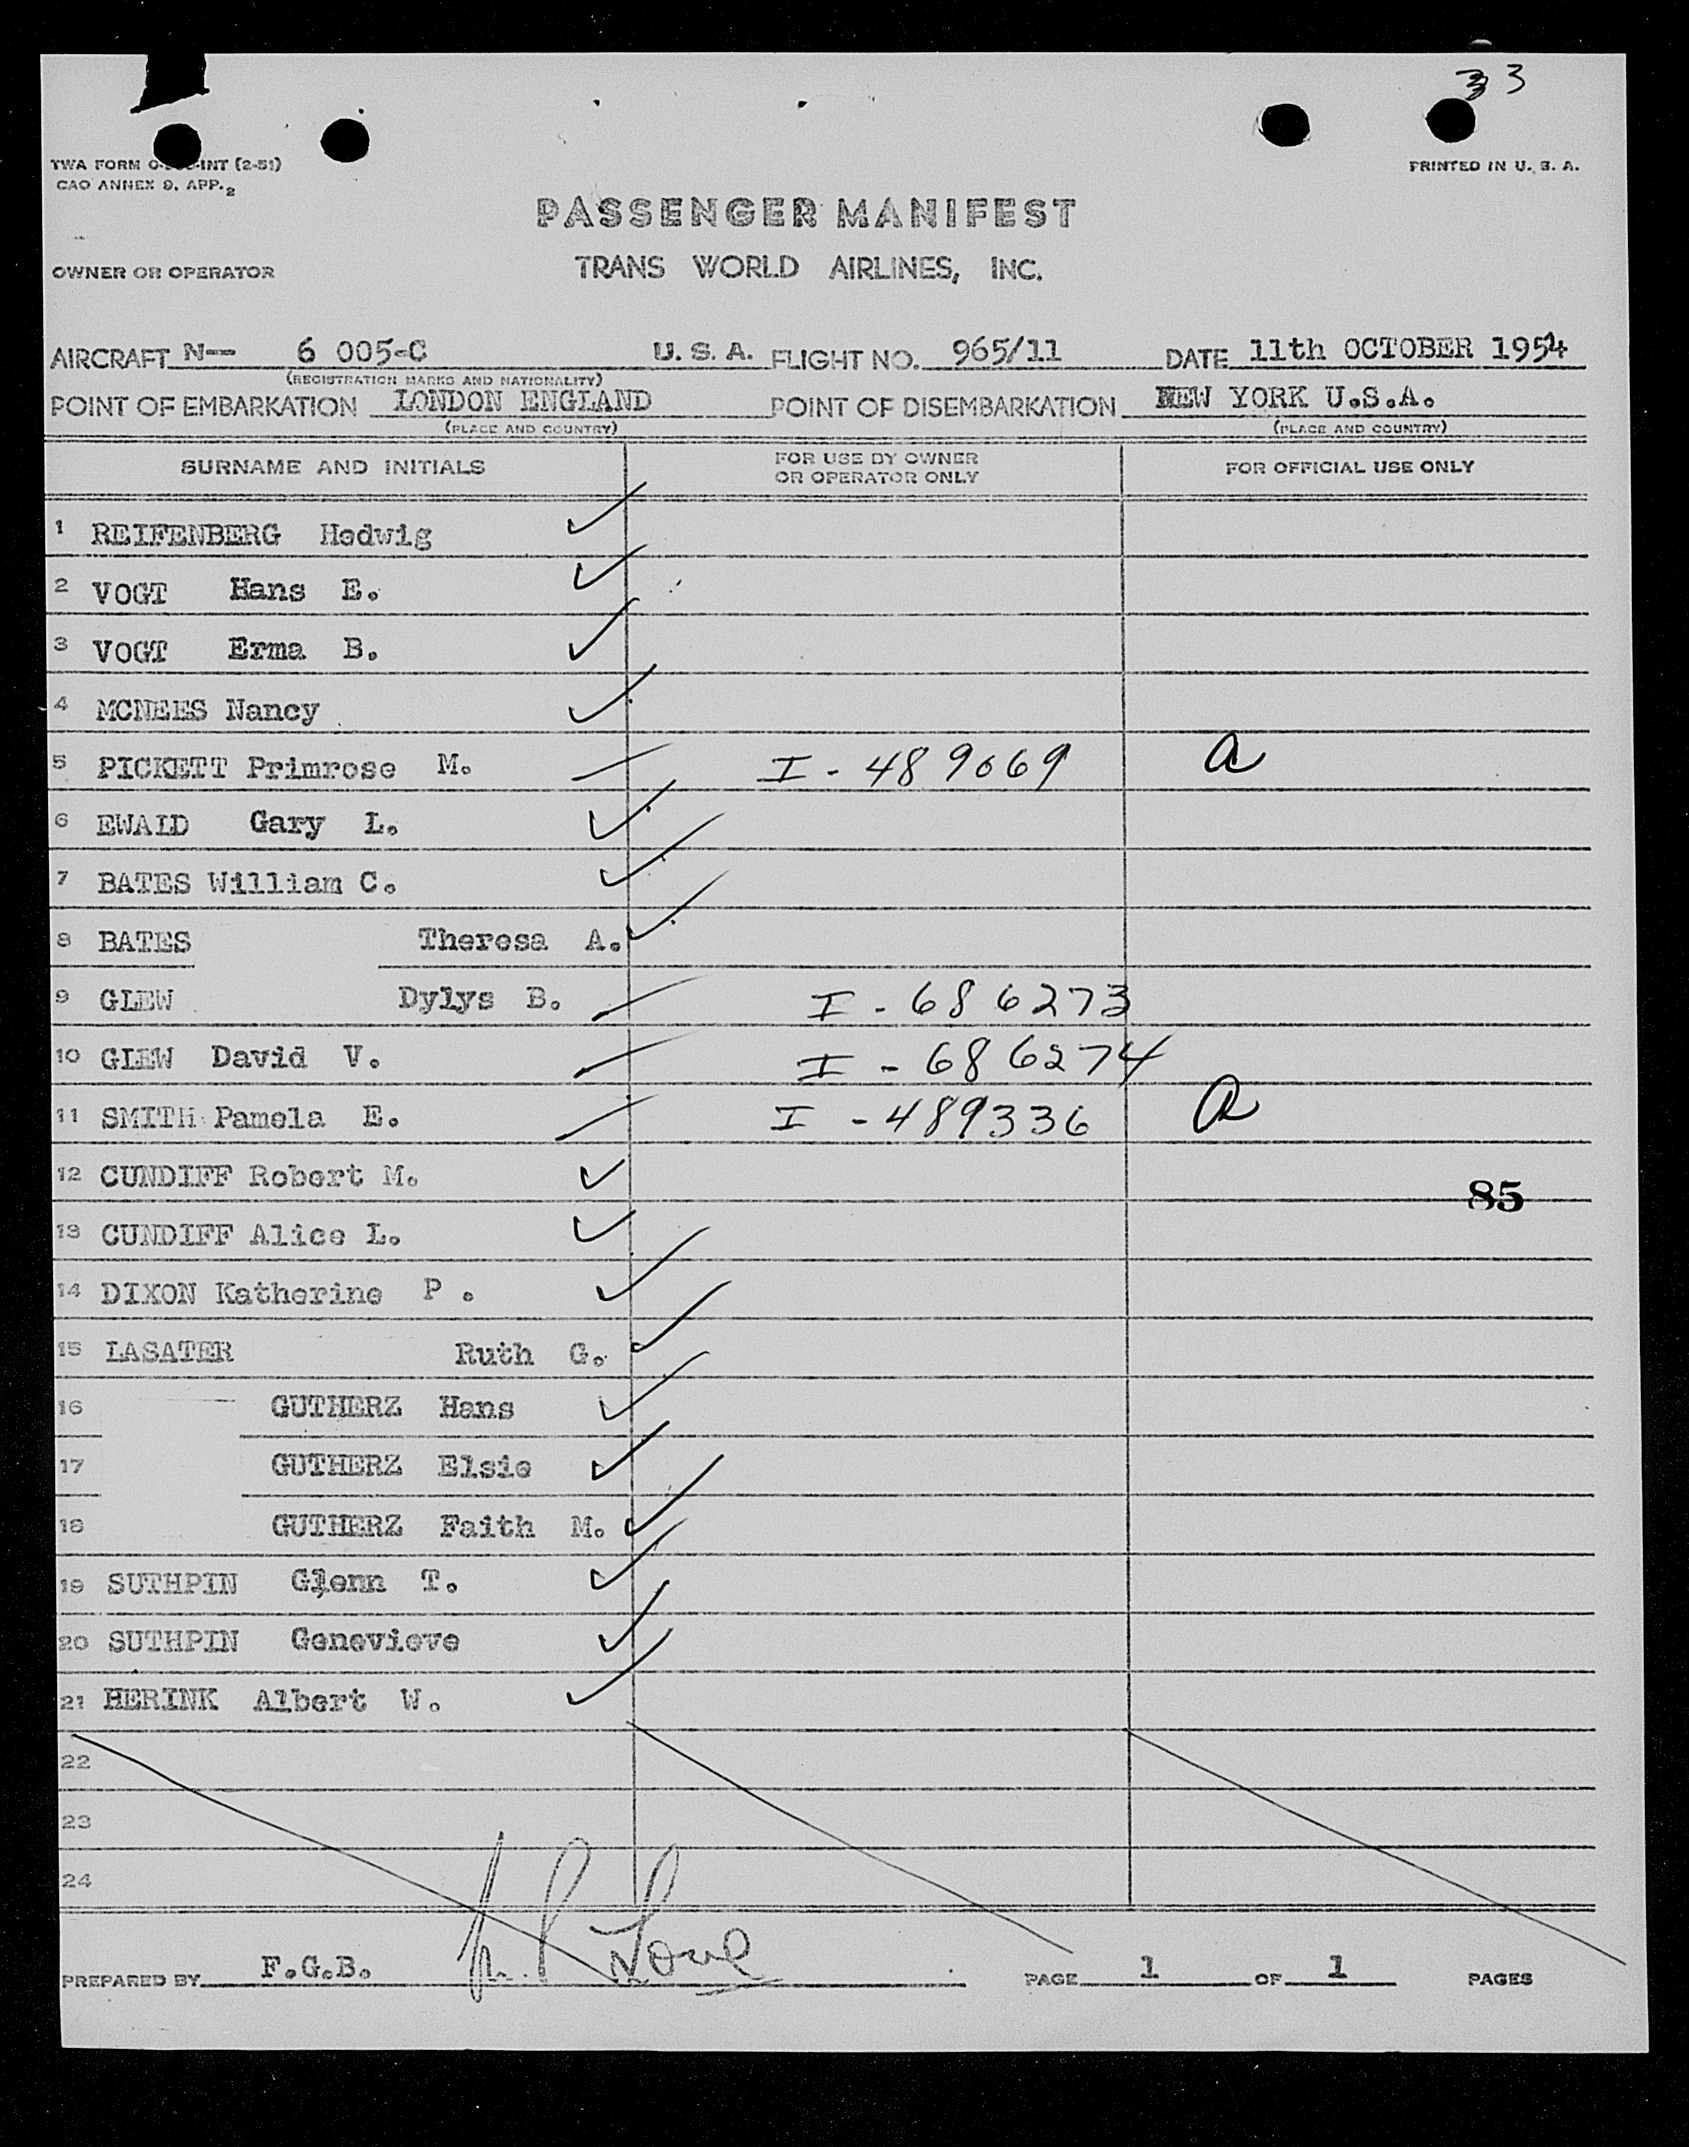 33
TWA FORM O- -INT (2-51)
CAO ANNEX 9, APP. 2
PRINTED IN U. S. A.
PASSENGER MANIFEST
OWNER OR OPERATOR
TRANS WORLD AIRLINES, INC.
AIRCRAFT N-- 6 005-C U. S. A. FLIGHT NO. 965/11 DATE 11th OCTOBER 1954
(REGISTRATION MARKS AND NATIONALITY)
POINT OF EMBARKATION LONDON ENGLAND POINT OF DISEMBARKATION NEW YORK U.S.A.
(PLACE AND COUNTRY) (PLACE AND COUNTRY)
SURNAME AND INITIALS FOR USE BY OWNER OR OPERATOR ONLY FOR OFFICIAL USE ONLY
1 REIFENBERG Hedwig
2 VOGT Hans E.
3 VOGT Erma B.
4 MCNEES Nancy
5 PICKETT Primrose M. I - 489069 a
6 EWALD Gary L.
7 BATES William C.
8 BATES Theresa A.
9 GLEW Dylys B. I - 686273
10 GLEW David V. I - 686274
11 SMITH Pamela E. I - 489336 a
12 CUNDIFF Robert M.
85
13 CUNDIFF Alice L.
14 DIXON Katherine P .
15 LASATER Ruth G.
16 GUTHERZ Hans
17 GUTHERZ Elsie
18 GUTHERZ Faith M.
19 SUTHPIN Glenn T.
20 SUTHPIN Genevieve
21 HERINK Albert W.
22
23
24
PREPARED BY F.G.B. PAGE 1 OF 1 PAGES